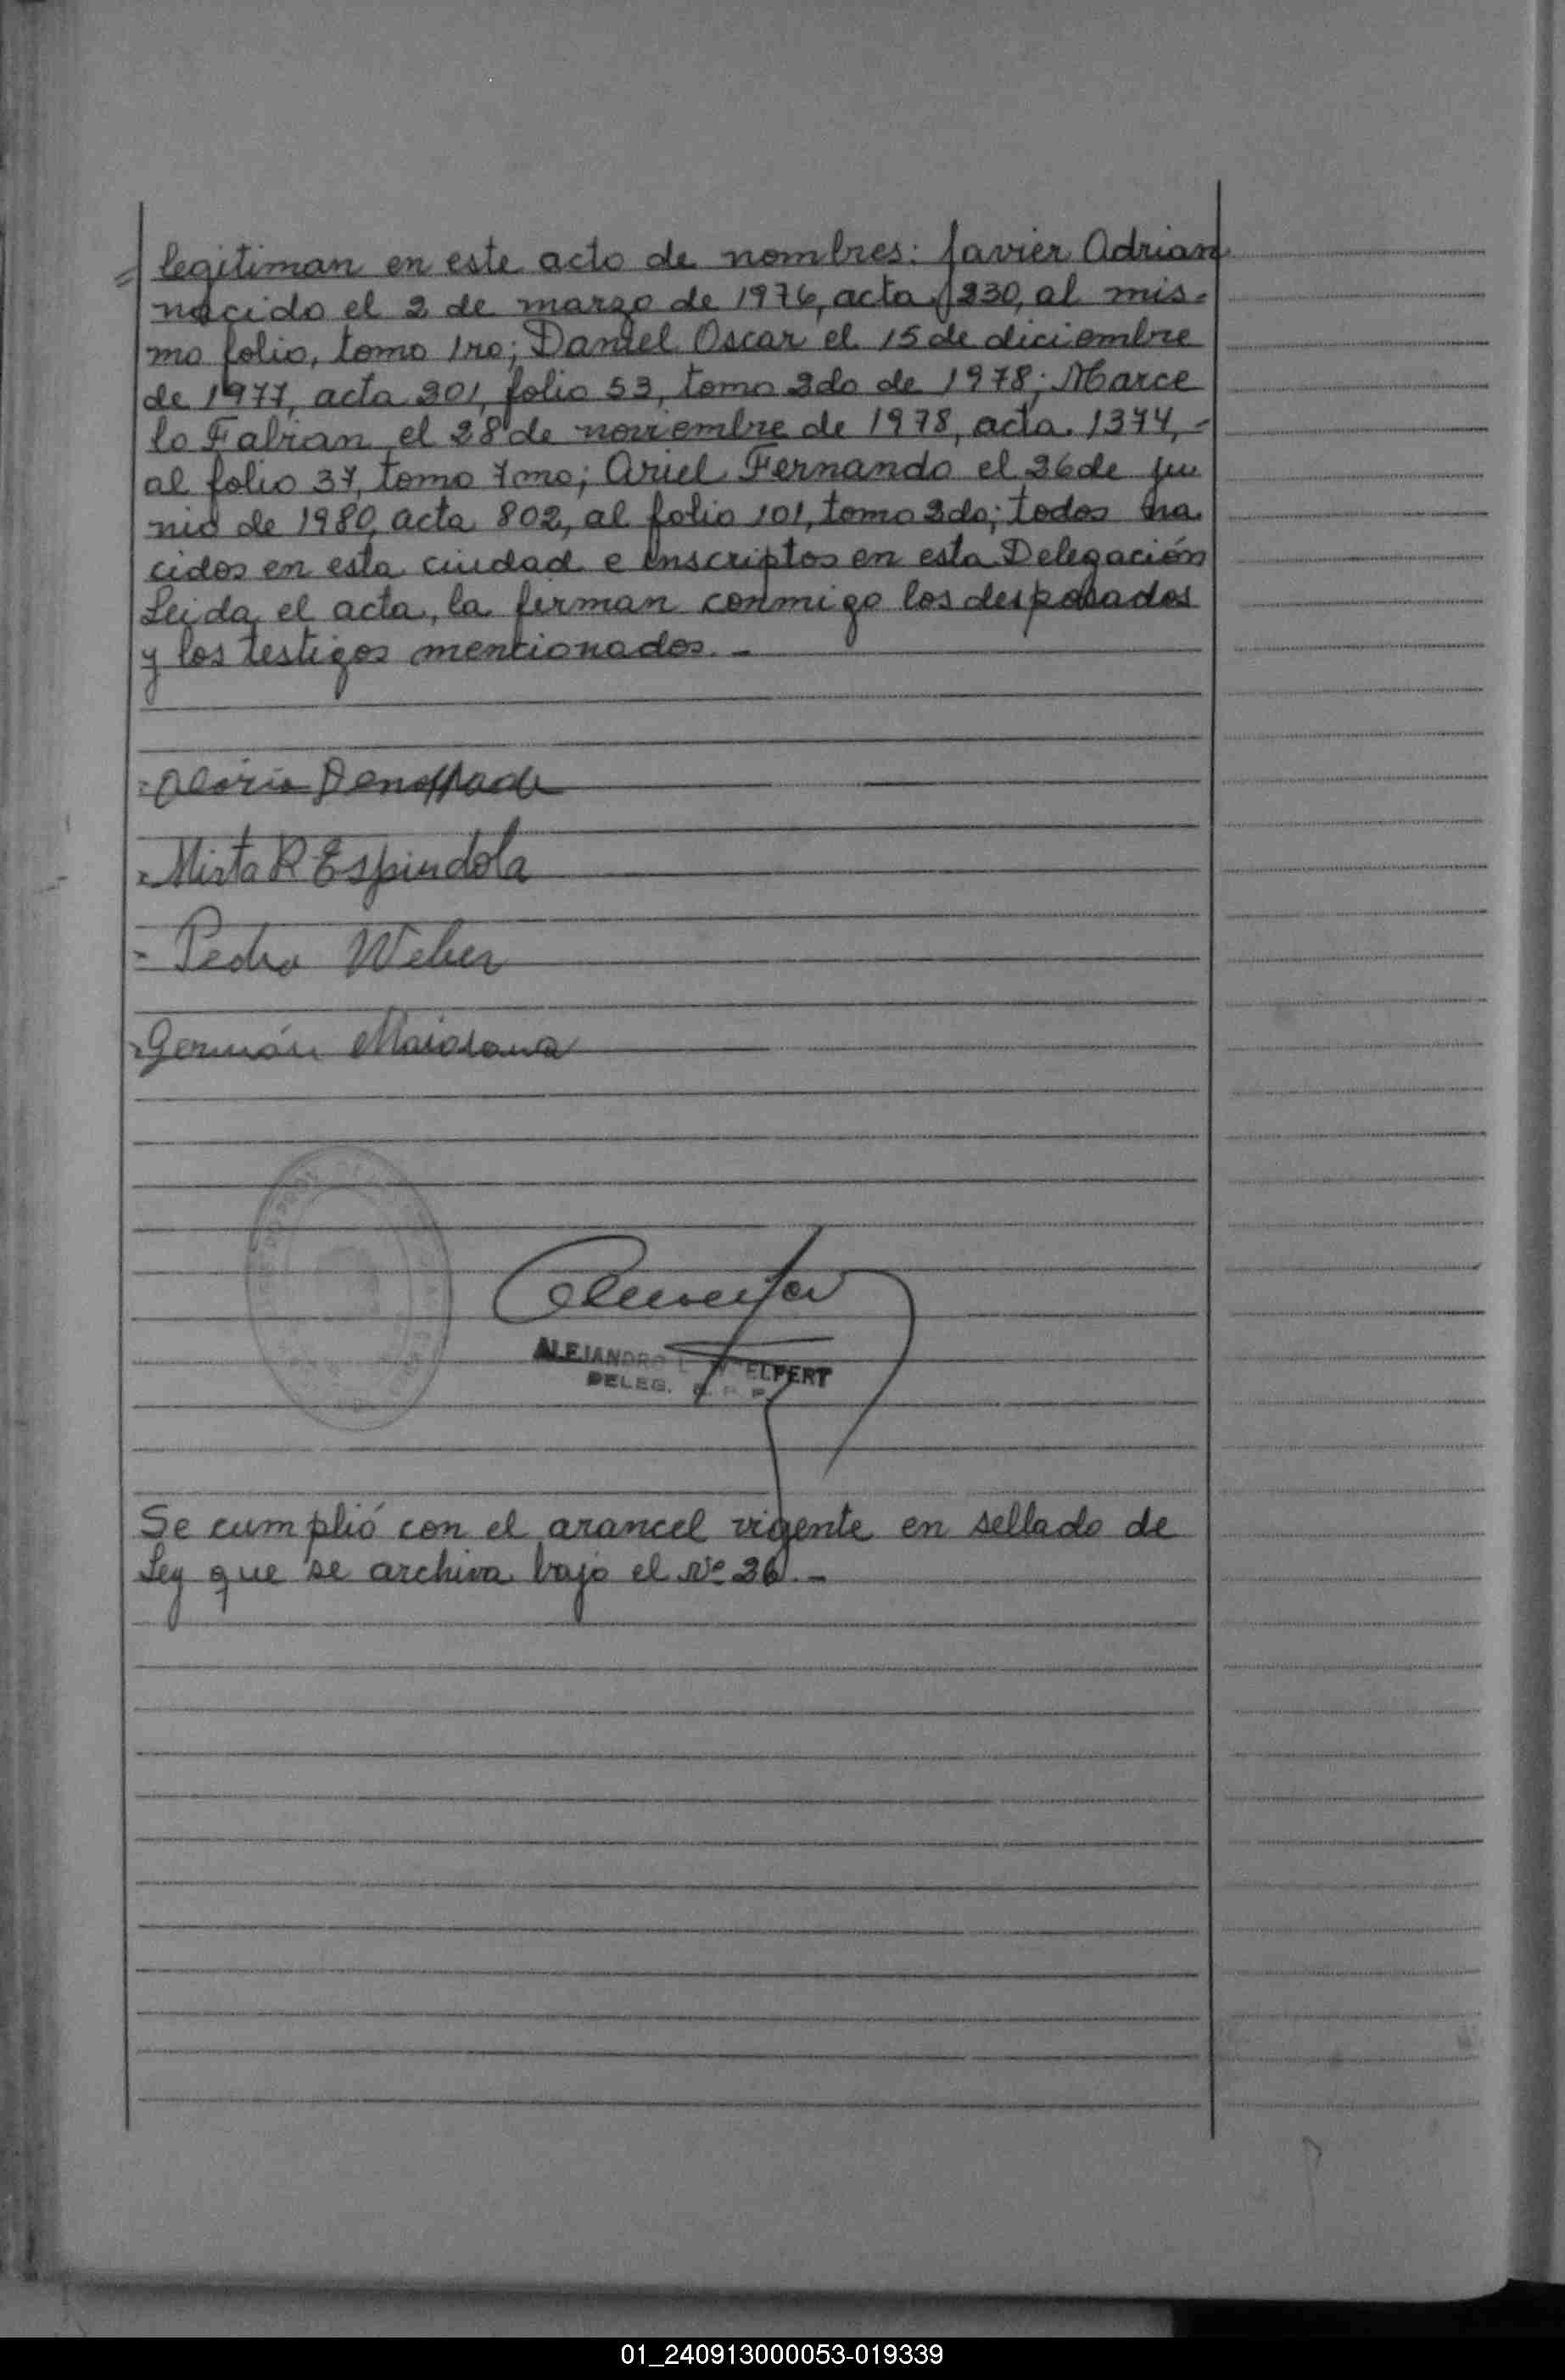 = legitiman en este acto de nombres: Javier Adrian
nacido el 2 de marzo de 1976, acta 230, al mis-
mo folio, tomo 1ro; Daniel Oscar el 15 de diciembre
de 1977, acta 201, folio 53, tomo 2do de 1978; Marce
lo Fabian el 28 de noviembre de 1978, acta 1374, -
al folio 37, tomo 7mo; Ariel Fernando el 26 de ju
nio de 1980, acta 802, al folio 101, tomo 2do; todos na
cidos en esta ciudad e inscriptos en esta Delegación
Leida el acta, la firman conmigo los desposados
y los testigos mencionados. -
Mirta R Espindola
Pedro Weber
Germán Maidana
ALEJANDRO L
DELEG.
Se cumplió con el arancel vigente en sellado de
Ley que se archiva bajo el Nº 26. -
01_240913000053-019339